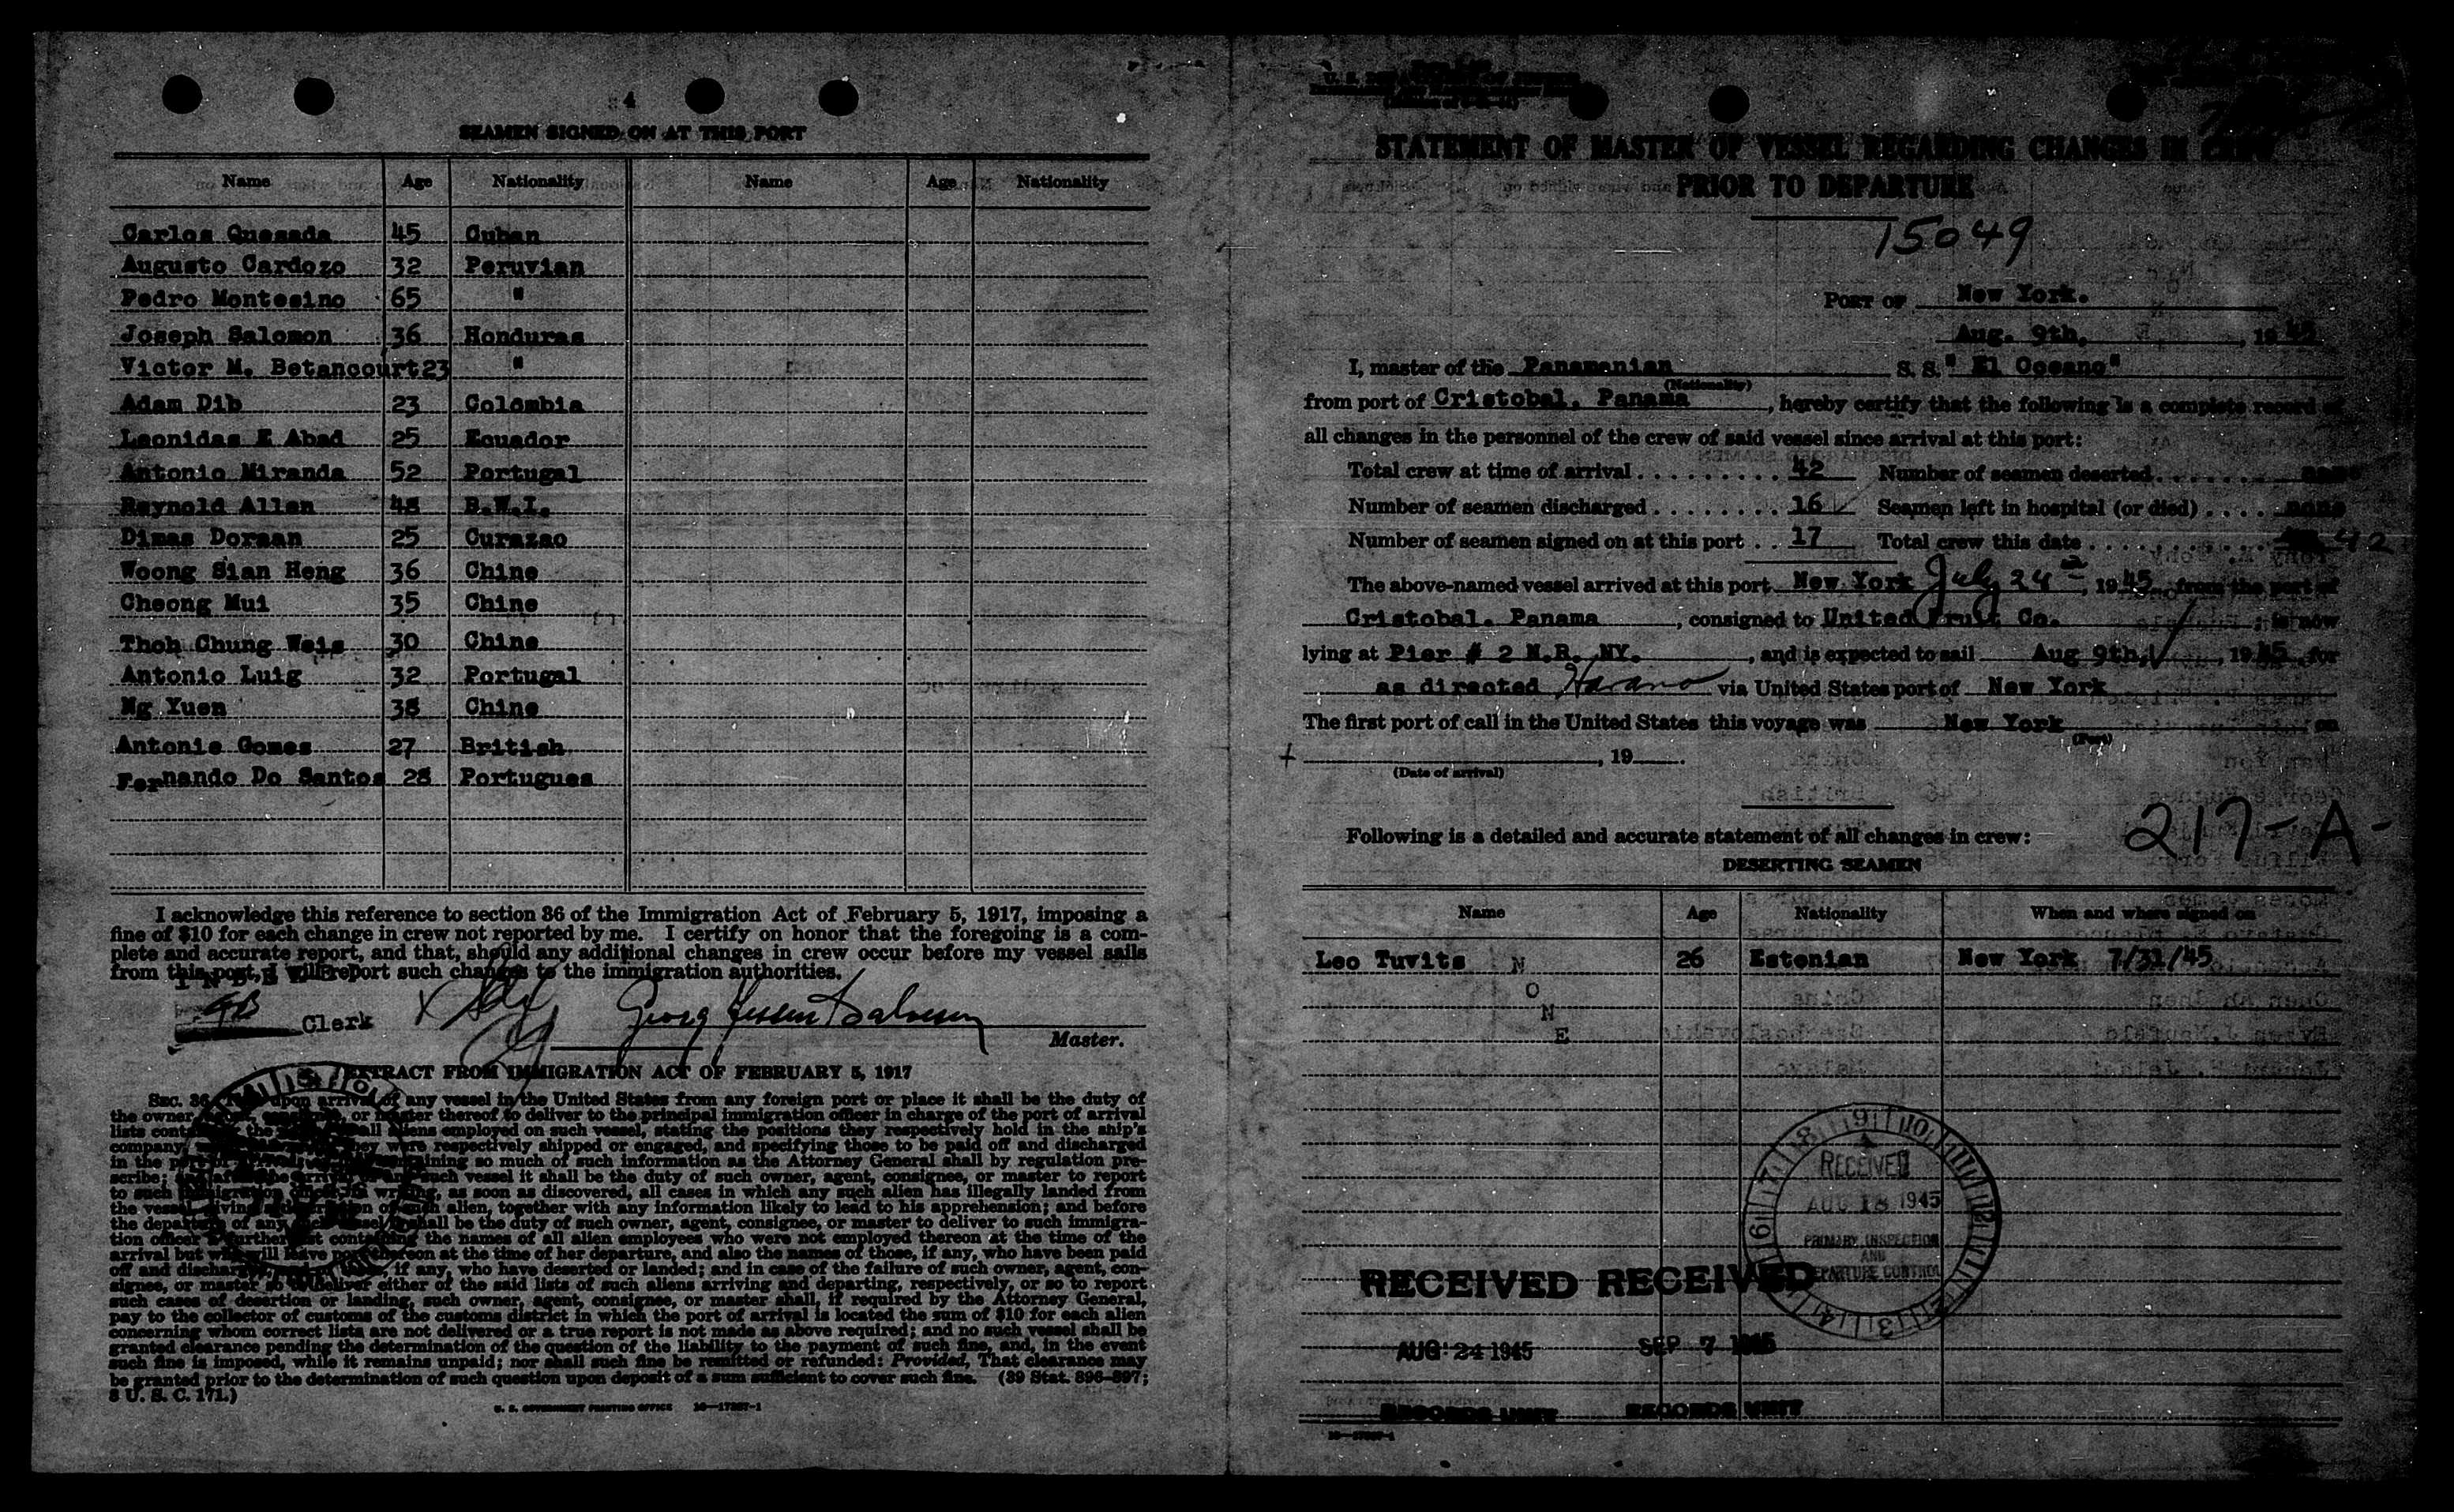 4
SEAMEN SIGNED ON AT THIS PORT
Name Age Nationality Name Age Nationality
Carlos Quesada 45 Cuban
Augusto Cardozo 32 Peruvian
Pedro Montesino 65 "
Joseph Salomon 36 Honduras
Victor M. Betancourt 23 "
Adam Dib 23 Colombia
Leonidas E Abad 25 Ecuador
Antonio Miranda 52 Portugal
Reynold Allen 48 B.W.I.
Dimas Doraan 25 Curazao
Woong Sian Heng 36 Chine
Cheong Mui 35 Chine
Thoh Chung Weis 30 Chine
Antonio Luig 32 Portugal
Ng Yuen 38 Chine
Antonie Gomes 27 British
Fernando Do Santos 28 Portugues
I acknowledge this reference to section 36 of the Immigration Act of February 5, 1917, imposing a
fine of $10 for each change in crew not reported by me. I certify on honor that the foregoing is a com-
plete and accurate report, and that, should any additional changes in crew occur before my vessel sails
from this port, I will report such changes to the immigration authorities.
Clerk
Master.
EXTRACT FROM IMMIGRATION ACT OF FEBRUARY 5, 1917
SEC. 36. upon arrival of any vessel in the United States from any foreign port or place it shall be the duty of
the owner, or master thereof to deliver to the principal immigration officer in charge of the port of arrival
lists all aliens employed on such vessel, stating the positions they respectively hold in the ship's
company, they were respectively shipped or engaged, and specifying those to be paid off and discharged
in the so much of such information as the Attorney General shall by regulation pre-
scribe; such vessel it shall be the duty of such owner, agent, consignee, or master to report
to such writing, as soon as discovered, all cases in which any such alien has illegally landed from
the vessel, of such alien, together with any information likely to lead to his apprehension; and before
the departure of any shall be the duty of such owner, agent, consignee, or master to deliver to such immigra-
tion officer a further list containing the names of all alien employees who were not employed thereon at the time of the
arrival but who will leave port thereon at the time of her departure, and also the names of those, if any, who have been paid
off and discharged, if any, who have deserted or landed; and in case of the failure of such owner, agent, con-
signee, or master so to deliver either of the said lists of such aliens arriving and departing, respectively, or so to report
such cases of desertion or landing, such owner, agent, consignee, or master shall, if required by the Attorney General,
pay to the collector of customs of the customs district in which the port of arrival is located the sum of $10 for each alien
concerning whom correct lists are not delivered or a true report is not made as above required; and no such vessel shall be
granted clearance pending the determination of the question of the liability to the payment of such fine, and, in the event
such fine is imposed, while it remains unpaid; nor shall such fine be remitted or refunded: Provided, That clearance may
be granted prior to the determination of such question upon deposit of a sum sufficient to cover such fine. (39 Stat. 896-897;
8 U. S. C. 171.)
U. S. GOVERNMENT PRINTING OFFICE 16-17287-1
STATEMENT OF MASTER OF VESSEL REGARDING CHANGES IN CREW
PRIOR TO DEPARTURE
15049
PORT OF New York.
Aug. 9th, 1945
I, master of the Panamanian S. S. " El Oceano"
(Nationality)
from port of Cristobal, Panama, hereby certify that the following is a complete record of
all changes in the personnel of the crew of said vessel since arrival at this port:
Total crew at time of arrival 42 Number of seamen deserted none
Number of seamen discharged 16 Seamen left in hospital (or died) none
Number of seamen signed on at this port 17 Total crew this date 42
The above-named vessel arrived at this port New York July 24, 1945 from the port of
Cristobal. Panama, consigned to United Fruit Co.; is now
lying at Pier # 2 N.R. NY., and is expected to sail Aug 9th, 1945 for
as directed Havana via United States port of New York
The first port of call in the United States this voyage was New York on
(Port)
, 19
(Date of arrival)
Following is a detailed and accurate statement of all changes in crew:
217-A-
DESERTING SEAMEN
Name Age Nationality When and where signed on
Leo Tuvits 26 Estonian New York 7/31/45
N
O
N
E
RECEIVED
AUG 18 1945
PRIMARY INSPECTION
AND
DEPARTURE CONTROL
RECEIVED RECEIVED
AUG 24 1945 SEP 7 1945
RECORDS UNIT RECORDS UNIT